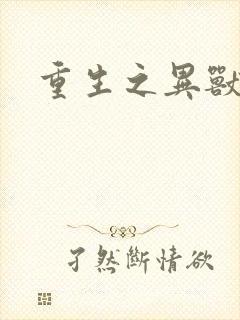 重生之異獸
孑然斷情欲